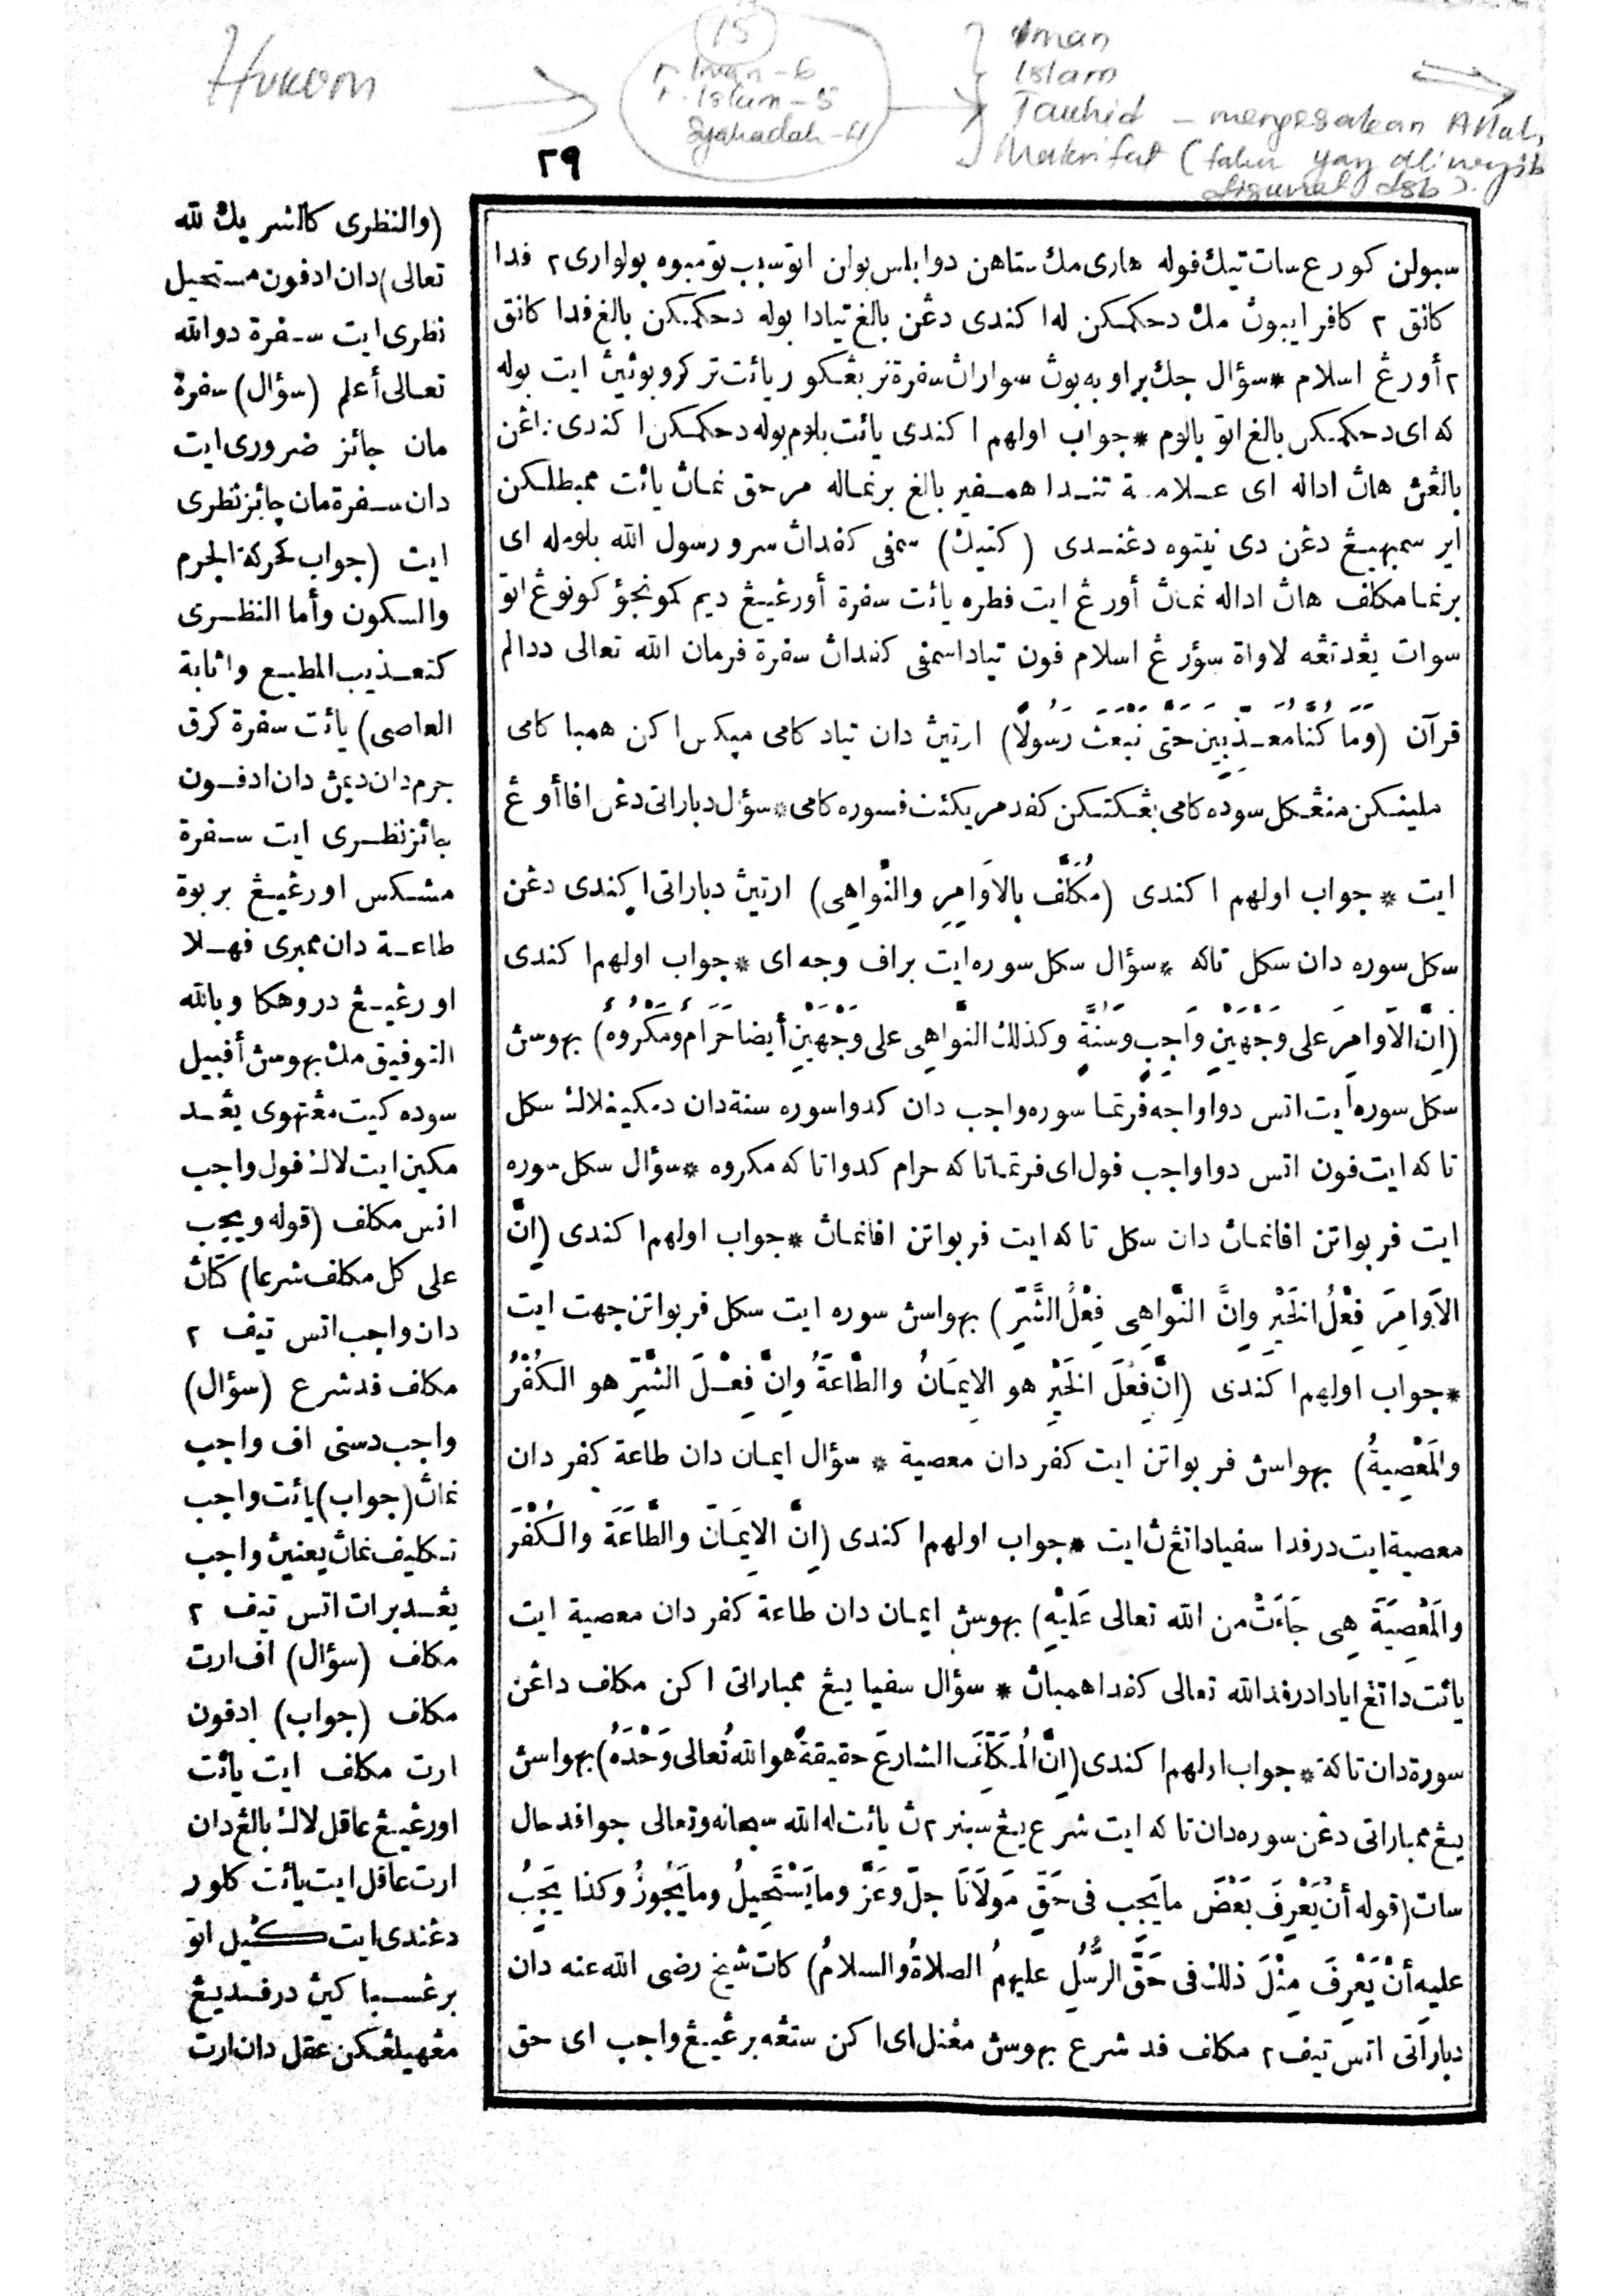 Hukom
15
r. Iman - 6
r. Islam - 5
Syahadah - 4
Iman
Islam
Tauhid - mengesakan Allah
Makrifat (tahu yang
dsb).
٢٩
سبولن كورڠ سات تيك فوله هاري مك ستاهن دوابلس بولن اتو سبب تومبوه بولواري٢ فدا
كانق٢ كافر ايبون مك دحكمكن له اكندى دڠن بالغ تيادا بوله دحكمكن بالغ فدا كانق
٢ أورڠ اسلام * سؤال جك براوبه بون سوارن سفرة تربڠكو ريائت تركروبوثين ايت بوله
كه اى دحكمكن بالغ اتو بالوم * جواب اولهم اكندى يائت بلوم بوله دحكمكن اكندى دڠن
بالغن هان اداله اى علامة تندا همفير بالغ برنماله مرحق نمان يائت ممبطلكن
اير سمبهيڠ دڠن دى نيتوه دڠندى (كتيك) سمفى كفدان سرو رسول الله بلومله اى
برنما مكلف هان اداله نمان أورڠ ايت فطره يائت سفرة أورڠيڠ ديم كمونجؤ كونوڠ اتو
سوات يڠدتڠه لاواة سؤرڠ اسلام فون تيادا سمفى كفدان سفرة فرمان الله تعالى ددالم
قرآن (وَمَا كُنَّا مُعَذِّبِينَ حَتَّى نَبْعَثَ رَسُولًا) ارتيث دان تياد كامى ميكس اكن همبا كامى
ملينكن منڠكل سوده كامى بڠكتكن كفد مريكئت فسوره كامى * سؤال دباراتى دڠن افا أورڠ
ايت * جواب اولهم اكندى (مُكَلَّف بِالاَوَامِرِ والنَّوَاهِى) ارتيث دباراتى اكندى دڠن
سكل سوره دان سكل تاكه * سؤال سكل سوره ايت براف وجه اى * جواب اولهم اكندى
(اِنَّ الاَوَامِرَ على وَجْهَيْنِ وَاجِبٍ وَسُنَّةٍ وكذلك النَّوَاهِى على وَجْهَيْنِ أيضا حَرَامٌ ومَكْرُوهٌ) بهوسث
سكل سوره ايت اتس دوا واجه فرتما سوره واجب دان كدوا سوره سنة دان دمكينله لاك سكل
تاكه ايت فون اتس دوا واجب فول اى فرتما تاكه حرام كدوا تاكه مكروه * سؤال سكل سوره
ايت فربواتن افا نمان دان سكل تاكه ايت فربواتن افا نمان * جواب اولهم اكندى (اِنَّ
الاَوَامِرَ فِعْلُ الخَيْرِ وانَّ النَّوَاهِى فِعْلُ الشَّرِّ) بهواسث سوره ايت سكل فربواتن جهت ايت
* جواب اولهم اكندى (اِنَّ فِعْلَ الخَيْرِ هو الاِيمَانُ والطَّاعَةُ وانَّ فِعْلَ الشَّرِّ هو الكُفْرُ
والمَعْصِيةُ) بهواسث فربواتن ايت كفر دان معصية * سؤال ايمان دان طاعة كفر دان
معصية ايت درفدا سفيا داتڠن ايت * جواب اولهم اكندى (اِنَّ الاِيمَانَ والطَّاعَةَ والكُفْرَ
والمَعْصِيَةَ هِى جَاءَتْ من الله تعالى عَلَيْهِ) بهوسث ايمان دان طاعة كفر دان معصية ايت
يائت داتڠ ايادا درفد الله تعالى كفدا همبان * سؤال سفيا يڠ ممباراتى اكن مكلف داڠن
سورة دان تاكة * جواب اولهم اكندى (اِنَّ المُكَلِّفَ الشارعَ حقيقةً هو الله تُعالى وَحْدَهُ) بهواسث
يڠ ممباراتى دڠن سوره دان تاكه ايت شرع يڠ سبنر٢ث يائت له الله سبحانه وتعالى جوا فد حال
سات (قوله أنْ يَعْرِفَ بَعْضَ ما يَجِبُ فى حَقِّ مَولَانَا جلّ وعَزَّ وما يَسْتَحِيلُ وما يَجُوزُ وكذا يَجِبُ
عليهِ أنْ يَعْرِفَ مِثْلَ ذلك فى حَقِّ الرُّسُلِ عليهمُ الصلاةُ والسلامُ) كات شيخ رضى الله عنه دان
دباراتى اتس تيف٢ مكلف فد شرع بهوسث مڠنل اى اكن ستڠه برڠيڠ واجب اى حق
(والنظرى كالشريك لله
تعالى) دان ادفون مستحيل
نظرى ايت سفرة دو الله
تعالى أعلم (سؤال) سفرة
مان جائز ضرورى ايت
دان سفرة مان جائز نظرى
ايت (جواب كحركة الجرم
والسكون وأما النظرى
كتعذيب المطيع واثابة
العاصى) يائت سفرة كرق
جرم دان ديمث دان ادفون
جائز نظرى ايت سفرة
مشكس اورڠيڠ بربوة
طاعة دان ممبرى فهلا
اورڠيڠ دروهكا وبالله
التوفيق مك بهوسث أفبيل
سوده كيت مڠتهوى يڠد
مكين ايت لاك فول واجب
اتس مكلف (قوله ويجب
على كل مكلف شرعا) كتان
دان واجب اتس تيف ٢
مكلف فد شرع (سؤال)
واجب دسنى اف واجب
نمان (جواب) يائت واجب
تكليف نمان يعنين واجب
يڠد برات اتس تيف ٢
مكلف (سؤال) اف ارت
مكلف (جواب) ادفون
ارت مكلف ايت يائت
اورڠيڠ عاقل لاك بالغ دان
ارت عاقل ايت يائت كلور
دڠندى ايت كڬيل اتو
برڠسبا كين درفديڠ
مڠهيلڠكن عقل دان ارت